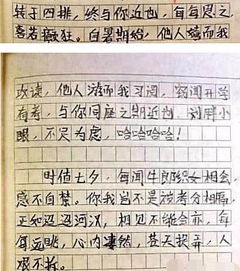 转于四排，终与你近也，每每思之
喜若癫狂。白署期始，他人嬉而我
攻读，他人游而我习词，窃闻开学
有考，与你同座之期近也，刘胖小
眼，不足为虑，哈哈哈哈！
时值七夕，每闻牛郎织女相会，
感不自禁。你我岂不是被考分相隔，
正如迢迢河汉，相见不能会亦，每
每远眺，心内凄然，苍天捉弄，人
艰不拆。